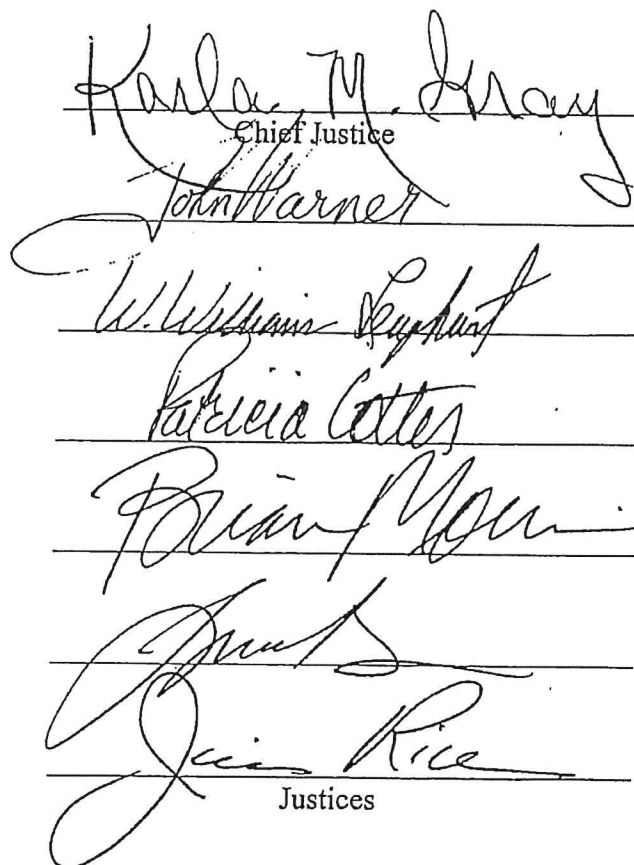 Karla M. Gray
Chief Justice
John Warner
W. William Leaphart
Patricia Cotter
Brian Morris
Jim Rice
Justices